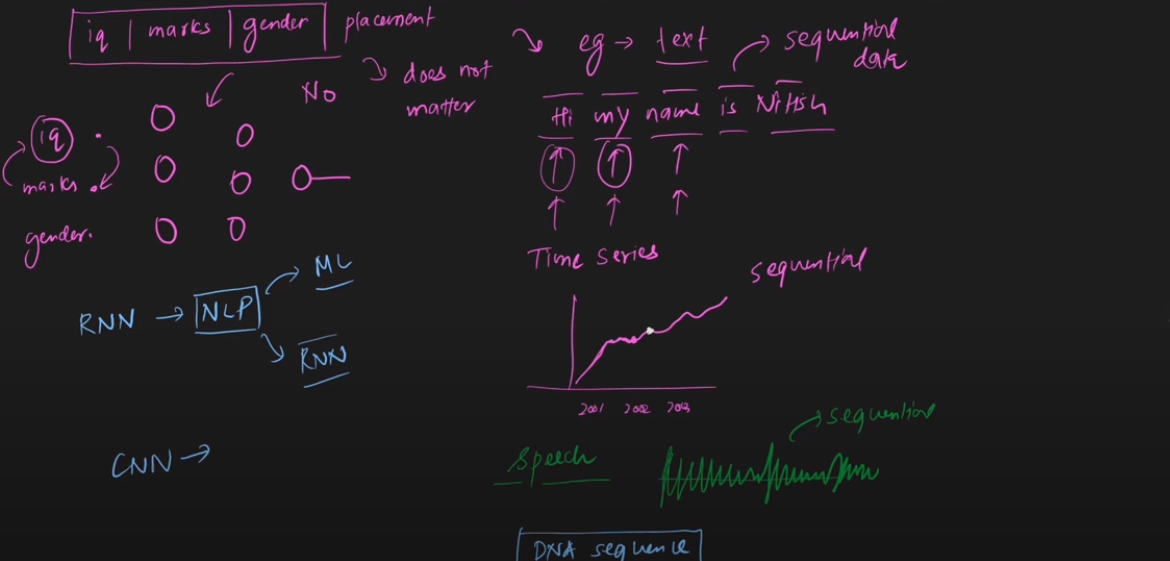 iq | marks | gender | placement
No
does not
matter
iq
marks
gender
RNN → NLP
ML
RNN
CNN →
eg → text
sequential
data
Hi my name is Nitish
Time Series
sequential
2001 2002 2003
speech
sequential
DNA sequence